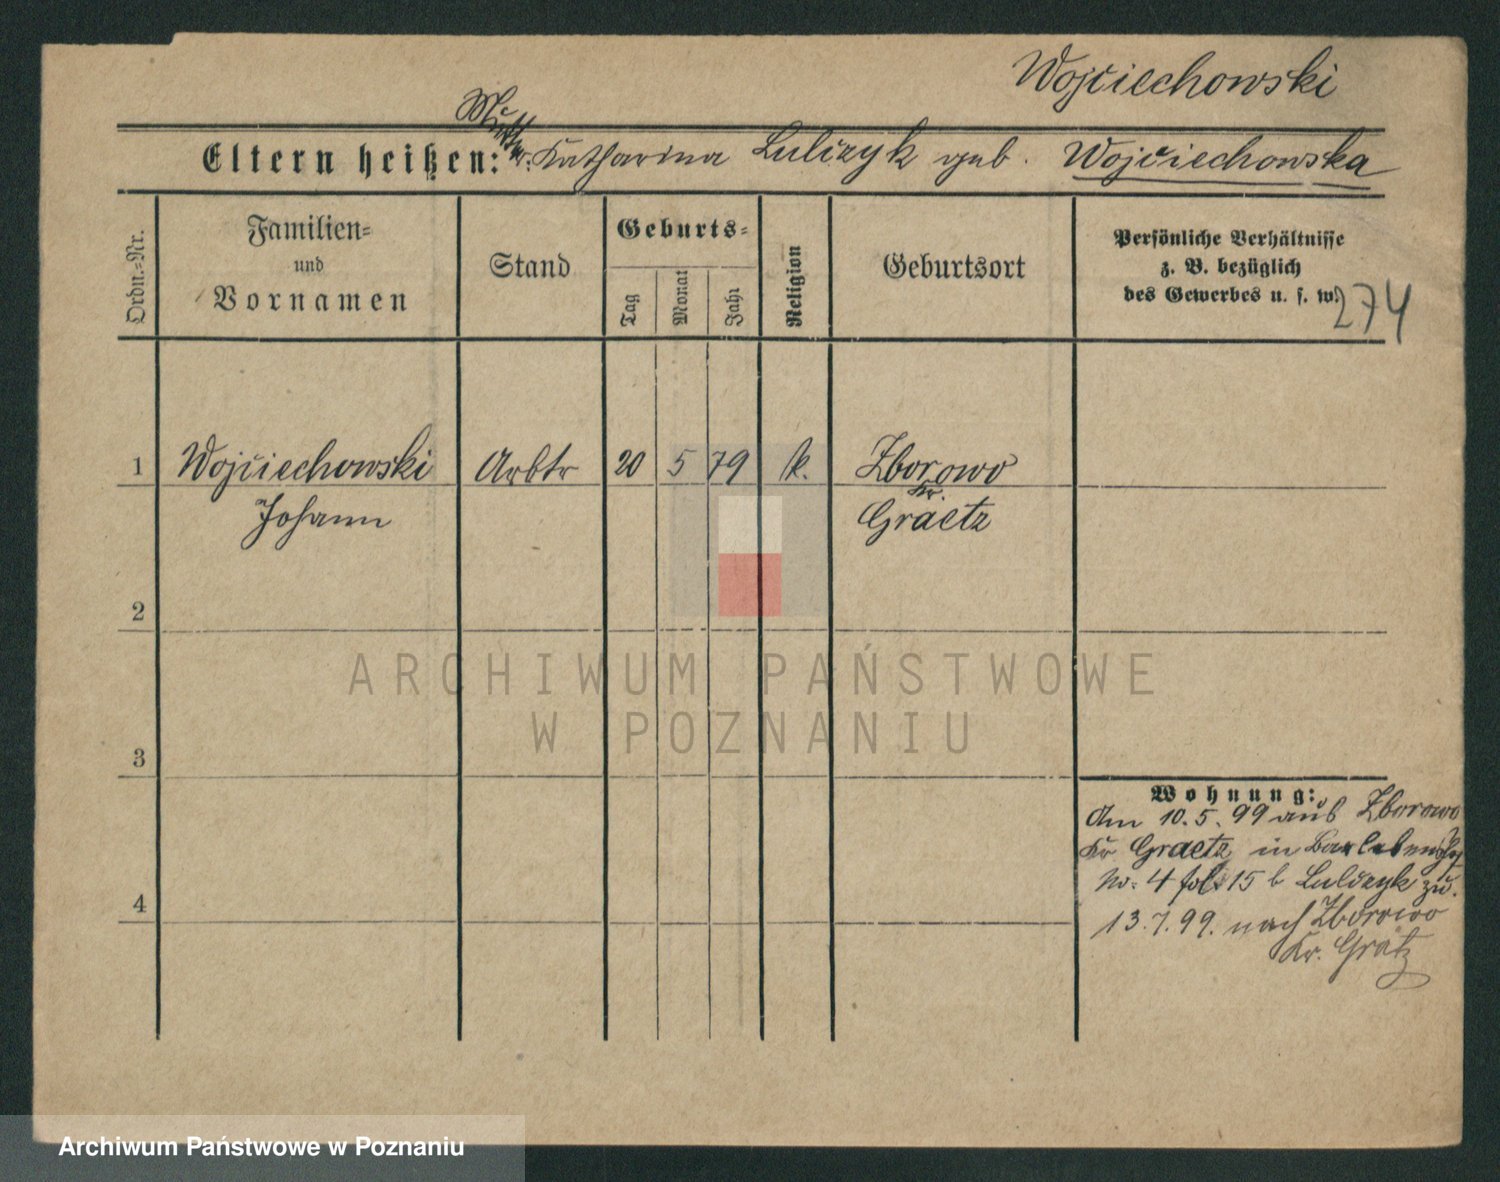 Wojciechowski
Mutter:
Eltern heißen: Katharina Lulczyk geb. Wojciechowska
Ordn.-Nr.
Familien-
und
Vornamen
Stand
Geburts-
Tag
Monat
Jahr
Religion
Geburtsort
Persönliche Verhältnisse
z. B. bezüglich
des Gewerbes u. s. w.
274
1 Wojciechowski Arbtr 20 5 79 k. Zborowo
Kr.
Johann Graetz
2
ARCHIWUM PAŃSTWOWE
W POZNANIU
3
Wohnung:
Am 10.5.99 aus Zborowo
Kr Graetz in
No. 4 15 b Lulczyk zu.
4
13.7.99. nach Zborowo
Kr. Grätz
Archiwum Państwowe w Poznaniu